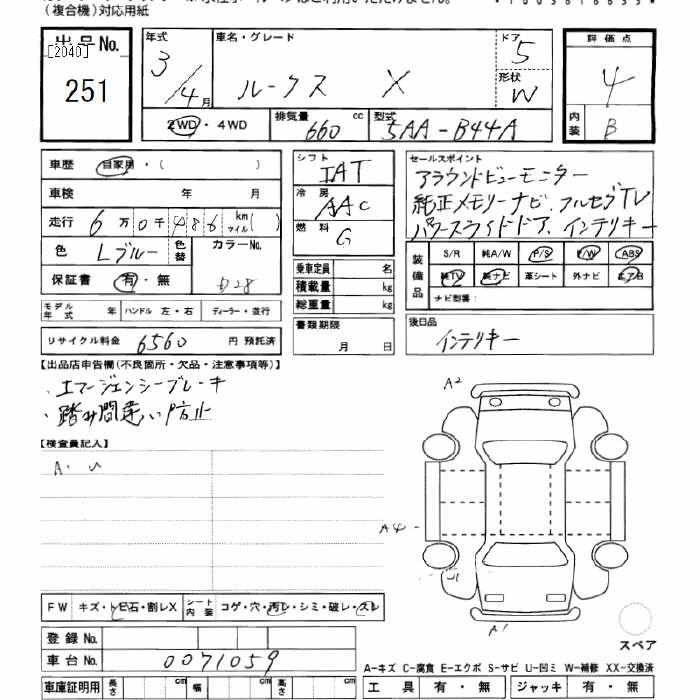 (複合機)対応用紙
出品No.
[2040]
251
年式
3/4月
車名・グレード
ルークス X
ドア 5
形状 W
評価点 4
内装 B
2WD・4WD
排気量 660 cc
型式 5AA-B44A
車歴 自家用・( )
車検 年 月
走行 6万0千486 km マイル( )
色 Lブルー 色替 カラーNo.
保証書 有・無
シフト IAT
冷房 AAC
燃料 G
乗車定員 名
積載量 kg
総重量 kg
書類期限
月 日
セールスポイント
アラウンドビューモニター
純正メモリーナビ、フルセグTV
パワースライドドア、インテリキー
装備品
S/R 純A/W P/S P/W ABS
純TV 純ナビ 革シート 外ナビ エアB
ナビ型番:
モデル年式 年 ハンドル 左・右 ディーラー・並行
リサイクル料金 6560 円 預託済
後日品
インテリキー
【出品店申告欄(不良箇所・欠品・注意事項等)】
・エマージェンシーブレーキ
・踏み間違い防止
【検査員記入】
A・U
A2
A4
A1
FW キズ・ヒビ石・割レX シート内装 コゲ・穴・汚レ・シミ・破レ・スレ
登録No.
車台No. 0071059
スペア
A-キズ C-腐食 E-エクボ S-サビ U-凹ミ W-補修 XX-交換済
車庫証明用 長さ cm 幅 cm 高さ cm
工具 有・無 ジャッキ 有・無